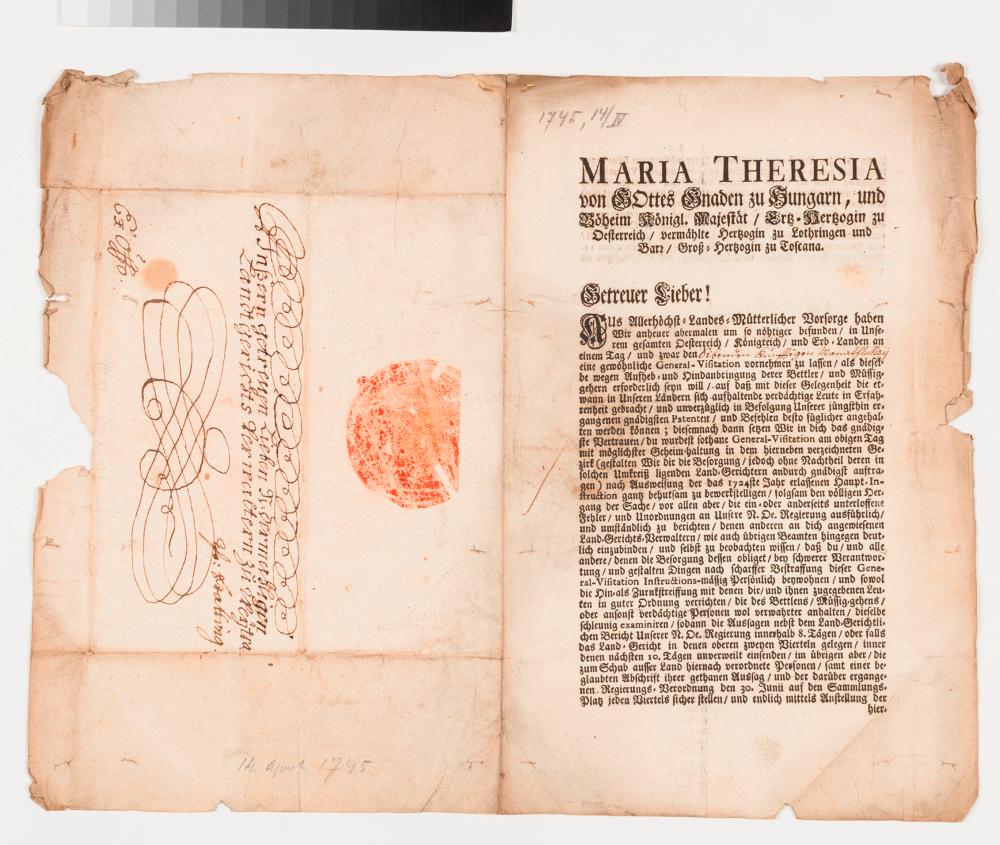 1745, 14/IV
MARIA THERESIA
von GOttes Gnaden zu Hungarn, und
Böheim Königl. Majestät / Ertz-Hertzogin zu
Oesterreich / vermählte Hertzogin zu Lothringen und
Barr / Groß-Hertzogin zu Toscana.
Getreuer Lieber!
AUs Allerhöchst-Landes-Mütterlicher Vorsorge haben
Wir anheuer abermalen um so nöhtiger befunden / in Unse-
rem gesamten Oesterreich / Königreich / und Erb-Landen an
einem Tag / und zwar den Sibenden Künfftigen Monaths May
eine gewöhnliche General-Visitation vornehmen zu lassen / als diesel-
be wegen Aufheb-und Hindanbringung derer Bettler / und Müssig-
gehern erforderlich seyn will / auf daß mit dieser Gelegenheit die et-
wann in Unseren Ländern sich aufhaltende verdächtige Leute in Erfah-
renheit gebracht / und unverzüglich in Befolgung Unserer jüngsthin er-
gangenen gnädigsten Patenten / und Befehlen desto füglicher angehal-
ten werden können; diesemnach dann setzen Wir in dich das gnädig-
ste Vertrauen / du wurdest sothane General-Visitation am obigen Tag
mit möglichster Geheim-haltung in dem hierneben verzeichneten Be-
zirk (gestalten Wir dir die Besorgung / jedoch ohne Nachtheil deren in
solchen Umkreiß ligenden Land-Gerichtern andurch gnädigst auftra-
gen) nach Ausweisung der das 1724ste Jahr erlassenen Haupt-In-
struction gantz behutsam zu bewerkstelligen / folgsam den völligen Her-
gang der Sache / vor allen aber / die ein-oder anderseits unterloffene
Fehler / und Unordnungen an Unsere N. Oe. Regierung ausführlich /
und umständlich zu berichten / denen anderen an dich angewiesenen
Land-Gerichts-Verwaltern / wie auch übrigen Beamten hingegen deut-
lich einzubinden / und selbst zu beobachten wissen / daß du / und alle
andere / denen die Besorgung dessen obliget / bey schwerer Verantwor-
tung / und gestalten Dingen nach scharffer Bestraffung dieser Gene-
ral-Visitation Instructions-mässig Persönlich beywohnen / und sowol
die Hin-als Zuruckstreiffung mit denen dir / und ihnen zugegebenen Leu-
ten in guter Ordnung verrichten / die des Bettlens / Müssig-gehens /
oder ansonst verdächtige Personen wol verwahrter anhalten / dieselbe
schleunig examiniren / sodann die Aussagen nebst dem Land-Gerichtli-
chen Bericht Unserer N. Oe. Regierung innerhalb 8. Tägen / oder falls
das Land-Gericht in denen oberen zweyen Vierteln gelegen / inner
denen nächsten 10. Tägen unverweilt einsenden / im übrigen aber / die
zum Schub ausser Land hiernach verordnete Personen / samt einer be-
glaubten Abschrift ihrer gethanen Aussag / und der darüber ergange-
nen Regierungs-Verordnung den 30. Junii auf den Sammlungs-
Platz jeden Viertels sicher stellen / und endlich mittels Anstellung der
hier-
Unsern getreuen Lieben N: dermahligen
Landtgerichts Verwaltern zu
14. April 1745